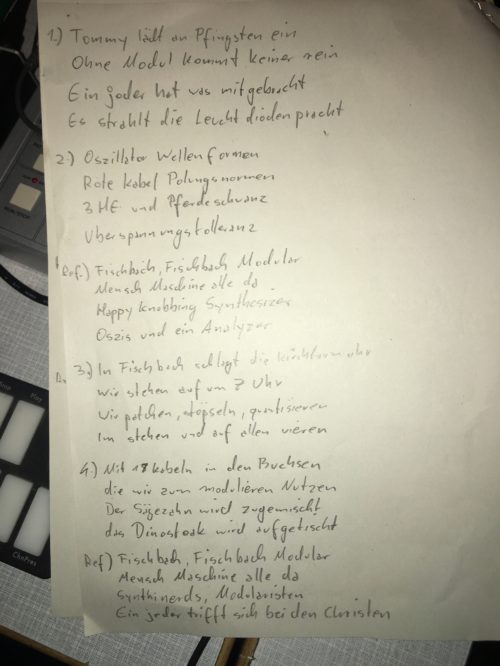 1.) Tommy lädt an Pfingsten ein
Ohne Modul kommt keiner rein
Ein jeder hat was mitgebracht
Es strahlt die Leuchtdiodenpracht
2.) Oszillator Wellenformen
Rote Kabel Polungsnormen
3 HE und Pferdeschwanz
Überspannungstolleranz
Ref.) Fischbach, Fischbach Modular
Mensch Maschine alle da
Happy Knobbing Synthesizer
Oszis und ein Analyzer
3.) In Fischbach schlägt die Kirchturmuhr
Wir stehen auf um 7 Uhr
Wir patchen, stöpseln, quantisieren
Im stehen und auf allen vieren
4.) Mit 17 Kabeln in den Buchsen
die wir zum modulieren Nutzen
Der Sägezahn wird zugemischt
das Dinosteak wird aufgetischt
Ref) Fischbach, Fischbach Modular
Mensch Maschine alle da
Synthinerds, Modularisten
Ein jeder trifft sich bei den Christen